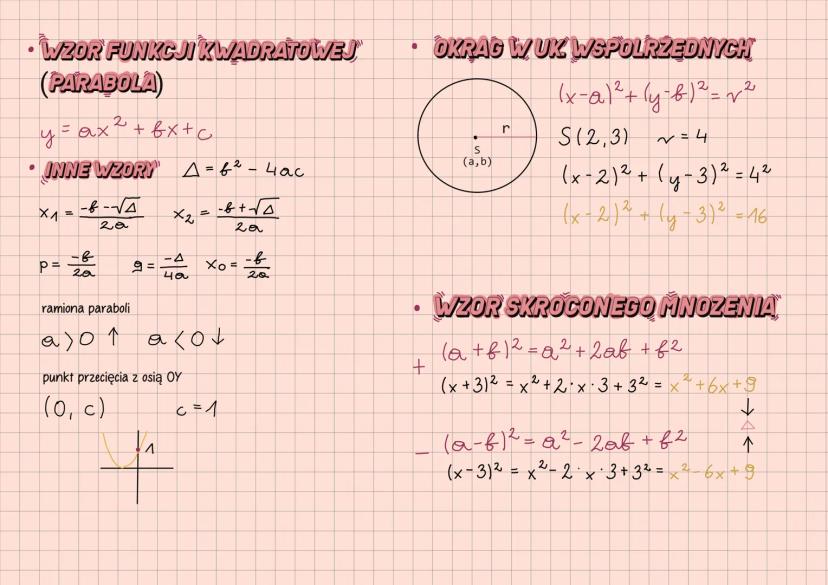 • WZOR FUNKCJI KWADRATOWEJ
(PARABOLA)
y = ax² + bx + c
• INNE WZORY Δ = b² - 4ac
x₁ = -b-√Δ / 2a x₂ = -b+√Δ / 2a
p = -b / 2a q = -Δ / 4a x₀ = -b / 2a
ramiona paraboli
a > 0 ↑ a < 0 ↓
punkt przecięcia z osią OY
(0, c) c = 1
1
• OKRAG W UK. WSPOLRZEDNYCH
(x-a)² + (y-b)² = r²
r
S
(a,b)
S(2,3) r = 4
(x-2)² + (y-3)² = 4²
(x-2)² + (y-3)² = 16
• WZOR SKROCONEGO MNOZENIA
+ (a+b)² = a² + 2ab + b2
(x+3)² = x² + 2·x·3 + 3² = x² + 6x + 9
↓
△
↑
− (a-b)² = a² - 2ab + b²
(x-3)² = x² - 2·x·3 + 3² = x² - 6x + 9